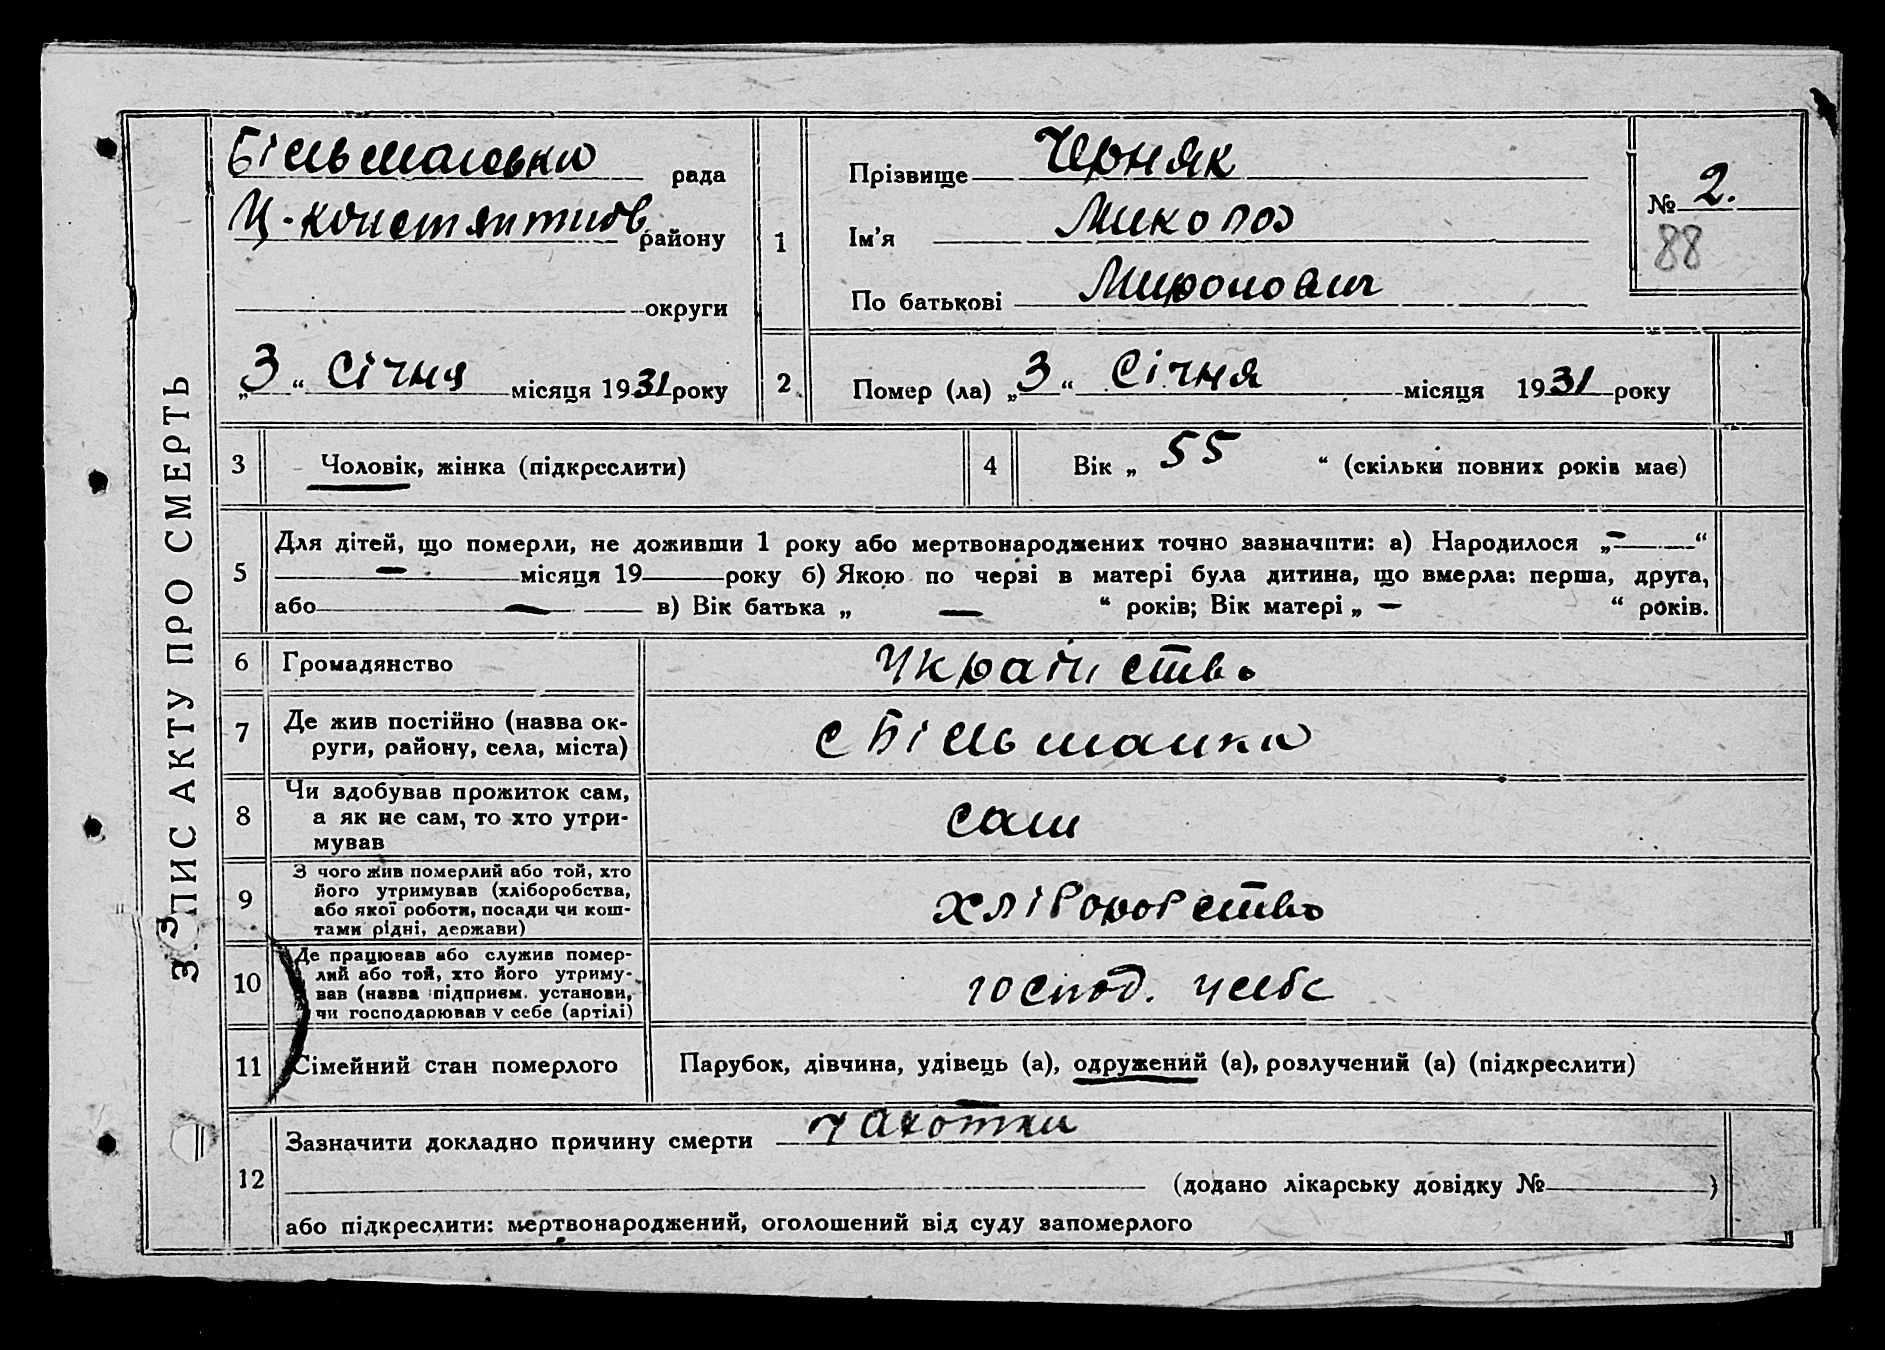 ЗАПИС АКТУ ПРО СМЕРТЬ
рада
районy
округи
„3“ Січня місяця 1931 року
1
Прізвище Черняк
Ім'я Микола
По батькові Миронович
№ 2.
88
2
Помер (ла) „3“ Січня місяця 1931 року
3
Чоловік, жінка (підкреслити)
4
Вік „ 55 “ (скільки повних років має)
5
Для дітей, що померли, не доживши 1 року або мертвонароджених точно зазначити: а) Народилося „—“
— місяця 19 року б) Якою по черзі в матері була дитина, що вмерла: перша, друга,
або — в) Вік батька „ — “ років; Вік матері „ — “ років.
6
Громадянство
7
Де жив постійно (назва ок-
руги, району, села, міста)
с
8
Чи здобував прожиток сам,
а як не сам, то хто утри-
мував
сам
9
З чого жив померлий або той, хто
його утримував (хліборобства,
або якої роботи, посади чи кош-
тами рідні, держави)
хлібороб ство
10
Де працював або служив помер-
лий або той, хто його утриму-
вав (назва підприєм. установи,
чи господарював у себе (артілі)
господ. у себе
11
Сімейний стан померлого
Парубок, дівчина, удівець (а), одружений (а), розлучений (а) (підкреслити)
12
Зазначити докладно причину смерти чахотки
(додано лікарську довідку № )
або підкреслити: мертвонароджений, оголошений від суду запомерлого